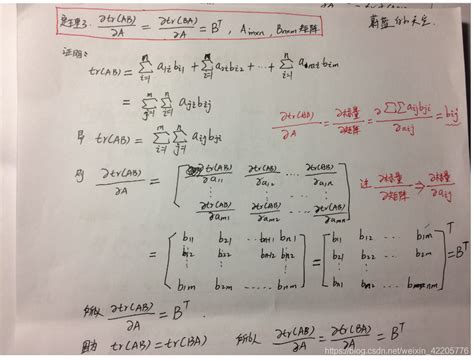 定理3. ∂tr(AB)/∂A = ∂tr(BA)/∂A = B^T, A_{m×n}, B_{n×m} 矩阵
蔚蓝的天空
证明:
tr(AB) = ∑_{i=1}^{n} a_{1i}b_{i1} + ∑_{i=1}^{n} a_{2i}b_{i2} + ⋯ + ∑_{i=1}^{n} a_{mi}b_{im}
= ∑_{j=1}^{m} ∑_{i=1}^{n} a_{ji}b_{ij}
即 tr(AB) = ∑_{i=1}^{m} ∑_{j=1}^{n} a_{ij}b_{ji}
∂tr(AB)/∂A = ∂标量/∂矩阵 = ∂∑∑a_{ij}b_{ji}/∂a_{ij} = b_{ji}
则 ∂tr(AB)/∂A = [ ∂tr(AB)/∂a_{11} ∂tr(AB)/∂a_{12} ⋯ ∂tr(AB)/∂a_{1n}
⋮
∂tr(AB)/∂a_{m1} ∂tr(AB)/∂a_{m2} ⋯ ∂tr(AB)/∂a_{mn} ]
注 ∂标量/∂矩阵 ⇒ ∂标量/∂a_{ij}
= [ b_{11} b_{21} ⋯ b_{n1} = [ b_{11} b_{12} ⋯ b_{1m} ]^T = B^T
b_{12} b_{22} ⋯ b_{n2} b_{21} b_{22} ⋯ b_{2m}
⋮ ⋮ ⋮
b_{1m} b_{2m} ⋯ b_{nm} ] b_{n1} b_{n2} ⋯ b_{nm} ]
所以 ∂tr(AB)/∂A = B^T
因为 tr(AB) = tr(BA) 所以 ∂tr(AB)/∂A = ∂tr(BA)/∂A = B^T
https://blog.csdn.net/weixin_42205776